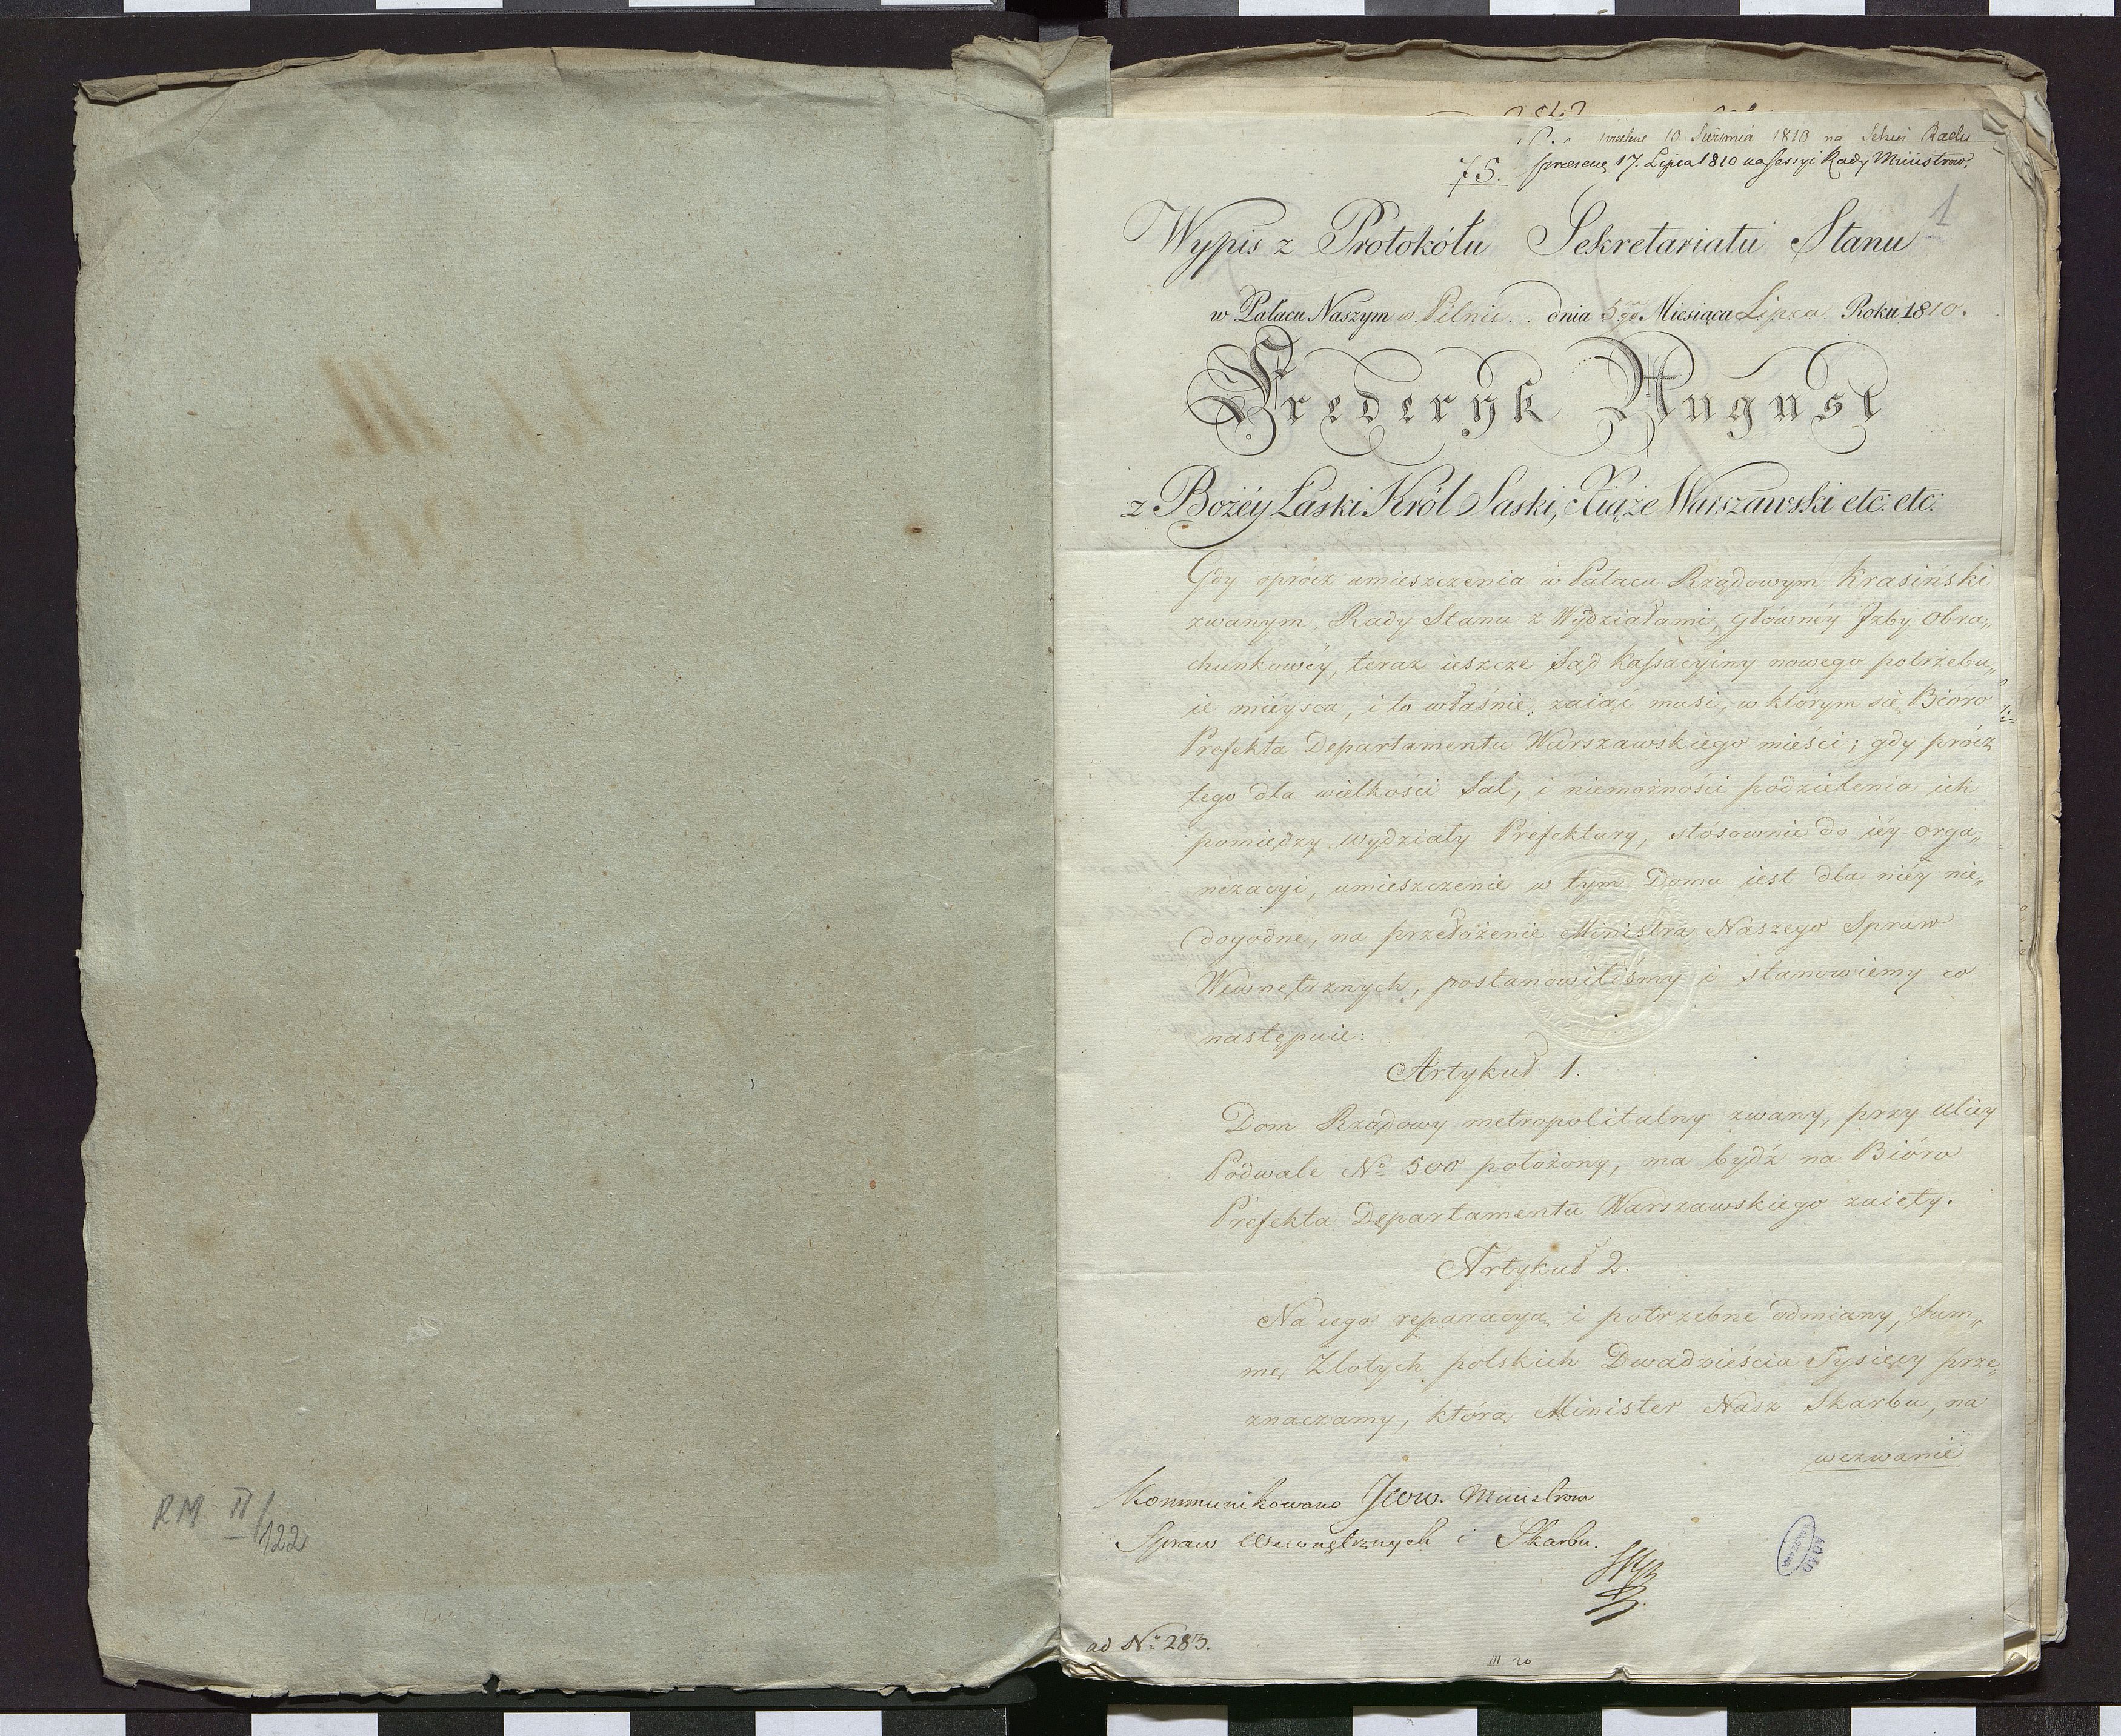 RM II/122
10 Sierpnia 1810 na Rady
75. praesent 17. Lipca 1810 na Sessyi Rady Ministrow.
1
Wypis z Protokółu Sekretariatu Stanu
w Pałacu Naszym w. Pilnic.. dnia 5go Miesiąca Lipca Roku 1810.
Frederyk August
z Bożéy Łaski Król Saski, Xiąże Warszawski etc: etc:
Gdy oprócz umieszczenia w Pałacu Rządowym Krasiński
zwanym, Rady Stanu z Wydziałami, Głównéy Izby Obra„
chunkowéy, teraz ieszcze Sąd Kassacyiny nowego potrzebu„
ie mieysca, i to właśnie zaiąć musi, w którym się Bióro
Prefekta Departamentu Warszawskiego mieści; gdy prócz
tego dla wielkości Sal, i niemożności podzielenia ich
pomiędzy Wydziały Prefektury, stósownie do iéy orga„
nizacyi, umieszczenie w tym Domu iest dla niéy nie„
dogodne, na przełożenie Ministra Naszego Spraw
Wewnętrznych, postanowiliśmy i stanowiemy co
następuie:
Artykuł 1.
Dom Rządowy metropolitalny zwany, przy Ulicy
Podwale No 500 położony, ma bydź na Bióro
Prefekta Departamentu Warszawskiego zaięty.
Artykuł 2.
Na iego reparacyą i potrzebne odmiany, Sum„
mę Złotych polskich Dwadzieścia Tysięcy prze„
znaczamy, którą Minister Nasz Skarbu, na
wezwanie
Kommunikowano JWW. Ministrom
Spraw Wewnętrznych i Skarbu.
ad No: 283.
III 20